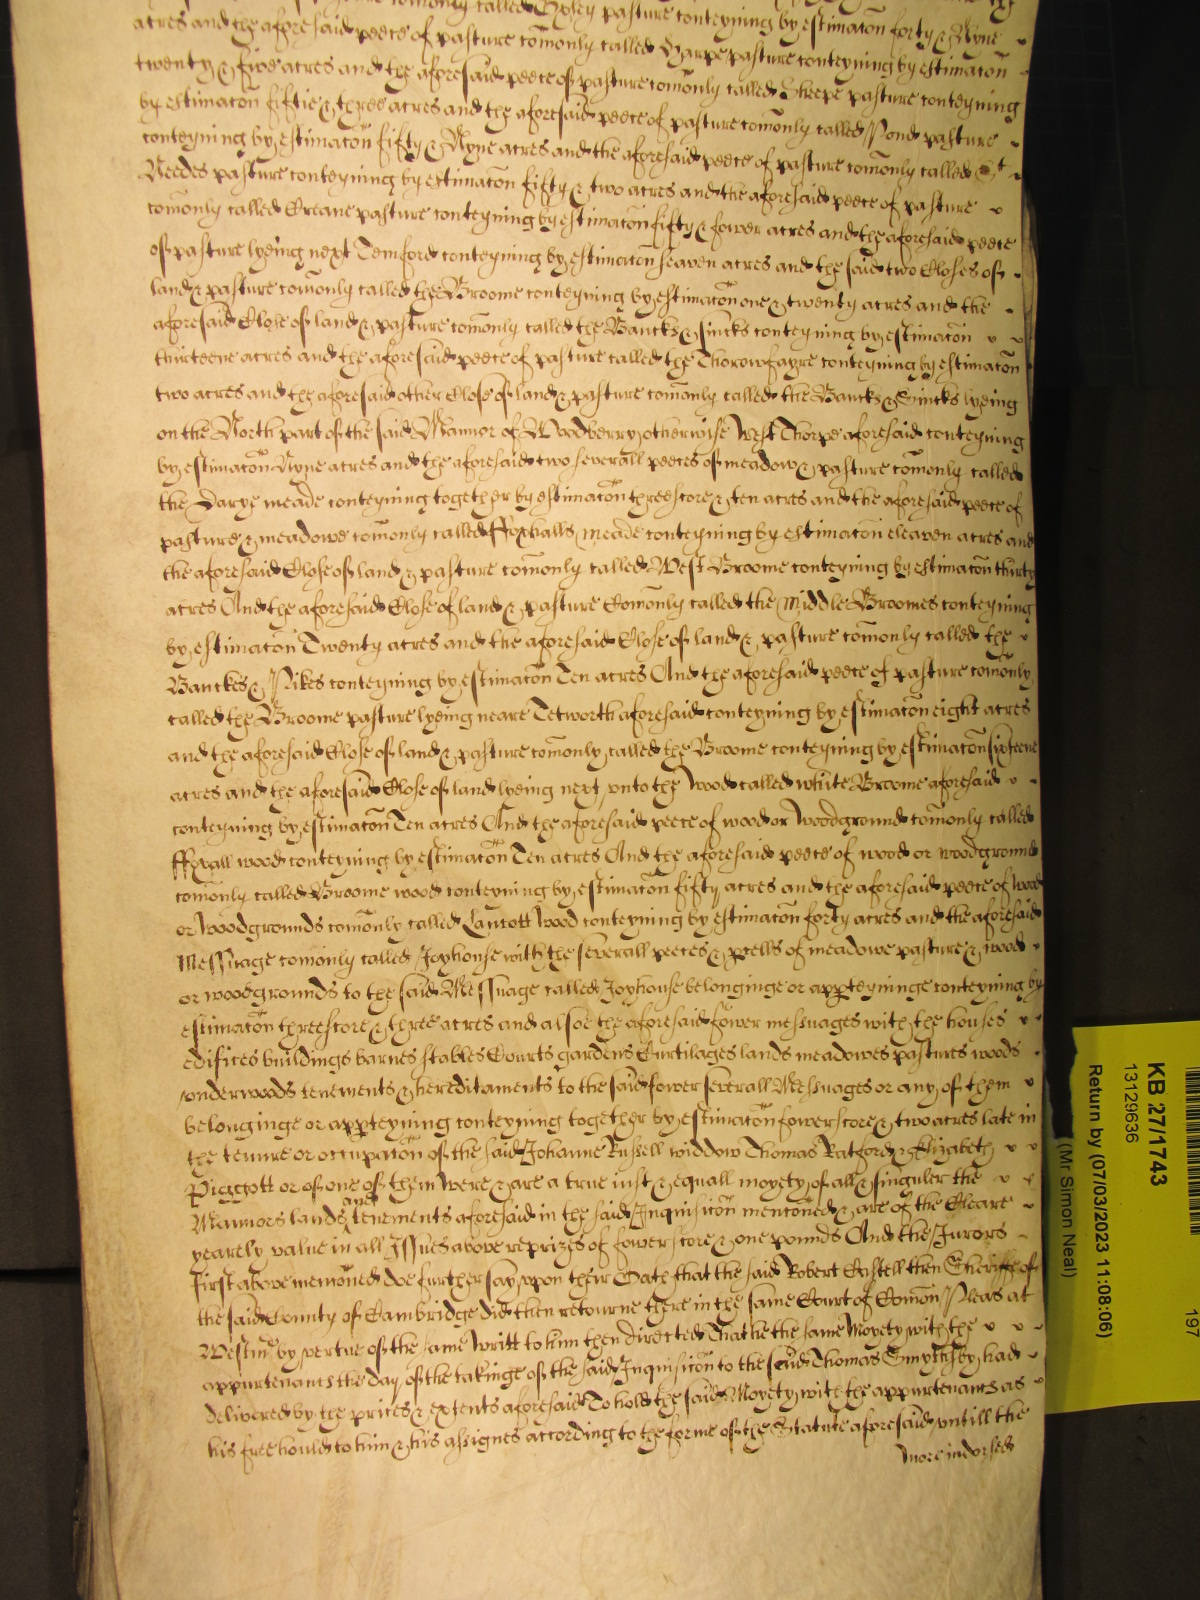 comonly called pasture conteyning by estimacon forty & Nyne
acres and the aforesaid peece of pasture comonly called Harpe pasture conteyning by estimacon
twenty & five acres and the aforesaid peece of pasture comonly called Sheepe pasture conteyning
by estimacon fiftie & three acres and the aforesaid peece of pasture comonly called Pond pasture
conteyning by estimacon fifty & Nyne acres and the aforesaid peece of pasture comonly called St
Needes pasture conteyning by estimacon fifty & two acres and the aforesaid peece of pasture
comonly called Creane pasture conteyning by estimacon fifty & fower acres and the aforesaid peece
of pasture lyeing next Temford conteyning by estimacon seaven acres and the said two Closes of
land & pasture comonly called the Broome conteyning by estimacon one & twenty acres and the
aforesaid Close of land & pasture comonly called the Bancks & sincks conteyning by estimacon
thirteene acres and the aforesaid peece of pasture called the Thorowfayre conteyning by estimacon
two acres and the aforesaid other Close of land & pasture comonly called the Bancks & Sincks lyeing
on the North part of the said Mannor of Woodberry otherwise West Thorpe aforesaid conteyning
by estimacon Nyne acres and the aforesaid two severall peeces of meadow & pasture comonly called
the Darye meade conteyning together by estimacon threescore & ten acres and the aforesaid peece of
pasture & meadowe comonly called Foxhalls meade conteyning by estimacon eleaven acres and
the aforesaid Close of land & pasture comonly called West Broome conteyning by estimacon thirty
acres And the aforesaid Close of land & pasture Comonly called the Middle Broomes conteyning
by estimacon Twenty acres and the aforesaid Close of land & pasture comonly called the
Banckes & Pikes conteyning by estimacon Ten acres And the aforesaid peece of pasture comonly
called the Broome pasture lyeing neare Tetworth aforesaid conteyning by estimacon eight acres
and the aforesaid Close of land & pasture comonly called the Broome conteyning by estimacon sixteene
acres and the aforesaid Close of land lyeing next unto the Wood called white Broome aforesaid
conteyning by estimacon Ten acres And the aforesaid peece of wood or Woodground comonly called
ffoxall wood conteyning by estimacon Ten acres And the aforesaid peece of wood or woodground
comonly called Broome wood conteyning by estimacon fifty acres and the aforesaid peece of wood
or Woodgrounds comonly called Lancott Wood conteyning by estimacon forty acres and the aforesaid
Messuage comonly called Joyhouse with the severall peeces & pcells of meadowe pasture & wood
or woodgrounds to the said Messuage called Joyhouse belonginge or appteyninge conteyning by
estimacon threescore & three acres and alsoe the aforesaid fower messuages with the houses
edifices buildings barnes stables Courts gardens Curtilages lands meadowes pastures woods
underwoods tenements & hereditaments to the said fower severall Messuages or any of them
belonginge or appteyning conteyning together by estimacon fowerscore & two acres late in
the tenure or occupacon of the said Johanne Russell widdow Thomas Ratford & Elizabeth
Piggott or of one of them were & are a true iust & equall moyety of all & singuler the
Mannors lands and tenements aforesaid in the said Inquisicon mencioned & are of the Cleare
yearely value in all Issues above reprizes of fowerscore & one pounds And the Jurors
first above menconed doe further say upon their Oath that the said Robert Castell then Sheriffe of
the said County of Cambridge did then retourne there in the same Court of Comon Pleas at
Westmr by vertue of the same Writt to him then directed That he the same Moyety with the
appurtenants the day of the takinge of the said Inquisicon to the said Thomas Smythsby had
delivered by the prices & extents aforesaid To hold the said Moyety with the appurtenants as
his free hould to him & his assignes according to the forme of the Statute aforesaid untill the
more indorsed
KB 27/1743
13129636
Return by (07/03/2023 11:08:06)
(Mr Simon Neal)
197